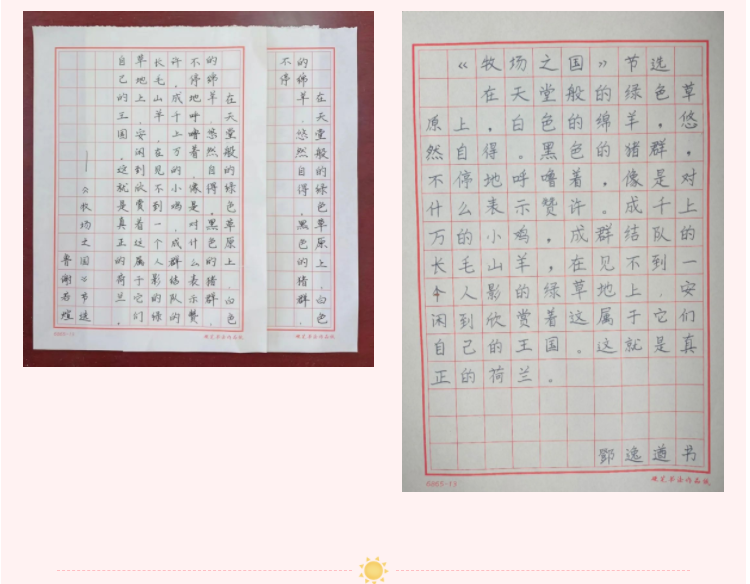 在天堂般的绿色草原上，白色
的绵羊，悠然自得，黑色的猪群，
不停
在天堂般的绿色草原上，白色
的绵羊，悠然自得，黑色的猪群，
不停地呼噜着，像是对什么表示赞
许，成千上万的小鸡，成群结队的
长毛山羊，在见不到一个人影的绿
草地上，安闲到欣赏着这属于它们
自己的王国，这就是真正的荷兰。
——《牧场之国》节选
硬笔书法作品纸
硬笔书法作品纸
《牧场之国》节选
在天堂般的绿色草
原上，白色的绵羊，悠
然自得。黑色的猪群，
不停地呼噜着，像是对
什么表示赞许。成千上
万的小鸡，成群结队的
长毛山羊，在见不到一
个人影的绿草地上，安
闲到欣赏着这属于它们
自己的王国。这就是真
正的荷兰。
书
硬笔书法作品纸